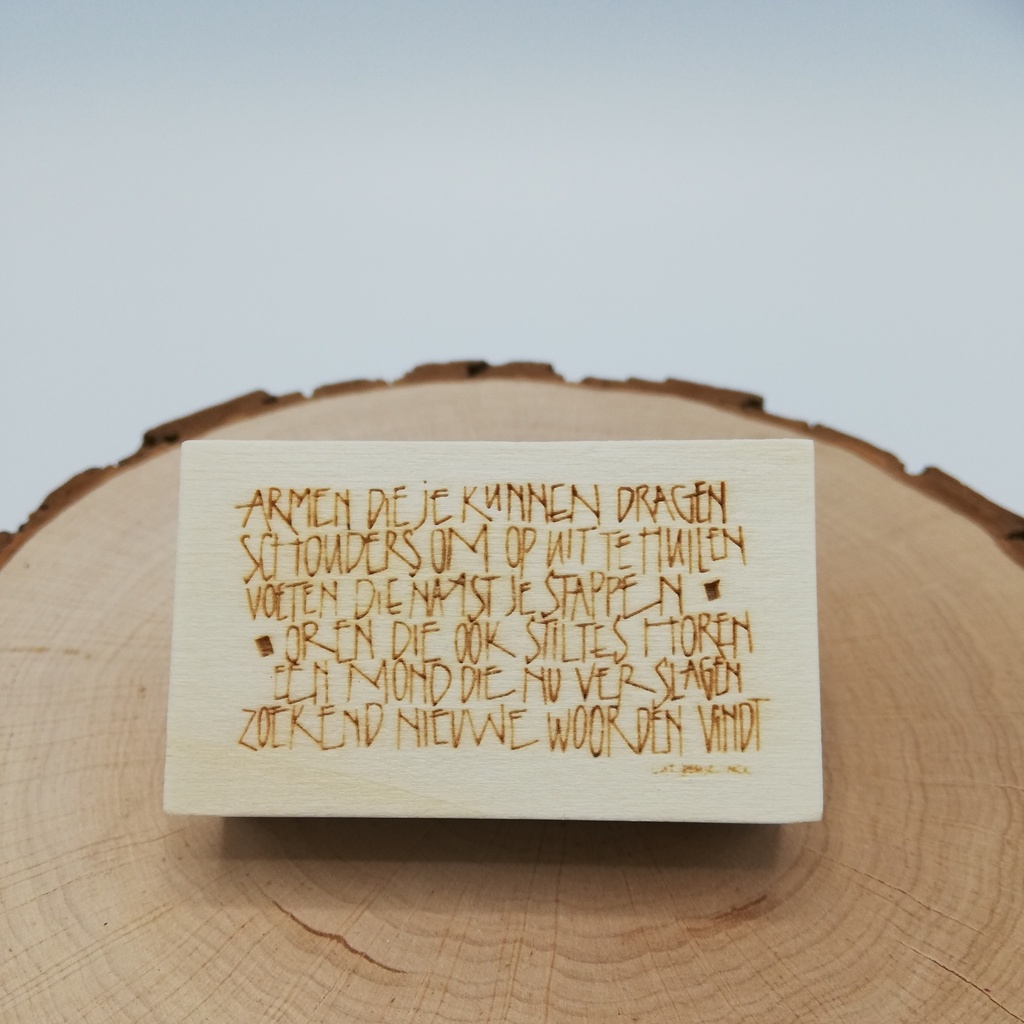 ARMEN DIE JE KUNNEN DRAGEN
SCHOUDERS OM OP UIT TE HUILEN
VOETEN DIE NAAST JE STAPPEN
OREN DIE OOK STILTES HOREN
EEN MOND DIE NU VERSLAGEN
ZOEKEND NIEUWE WOORDEN VINDT